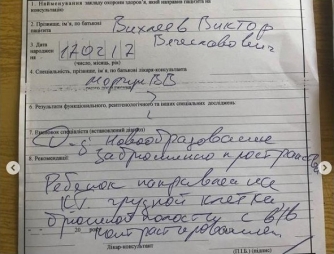 1. Найменування закладу охорони здоров'я, який направив пацієнта на
консультацію
2. Прізвище, ім'я, по батькові Вихлеев Виктор
пацієнта Вячеславович
3. Дата
народження
(число, місяць, рік)
4. Спеціальність, прізвище, ім'я, по батькові лікаря-консультанта
ВВ
6. Результати функціонального, рентгенологічного та інших спеціальних досліджень
7. Висновок спеціаліста (встановлений діагноз)
D-s Новообразование
забрюшинного пространства
8. Рекомендації
Ребенок направляется
КТ грудной клетки
брюшной полости с в/в
контрастированием
20 року
Лікар-консультант (П.І.Б.) (підпис)